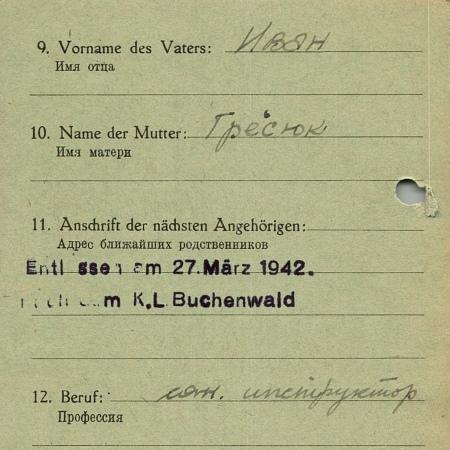 9. Vorname des Vaters: Иван
Имя отца
10. Name der Mutter: Гресюк
Имя матери
11. Anschrift der nächsten Angehörigen:
Адрес ближайших родственников
Entlassen am 27. März 1942.
K.L. Buchenwald
12. Beruf: сан. инструктор
Профессия